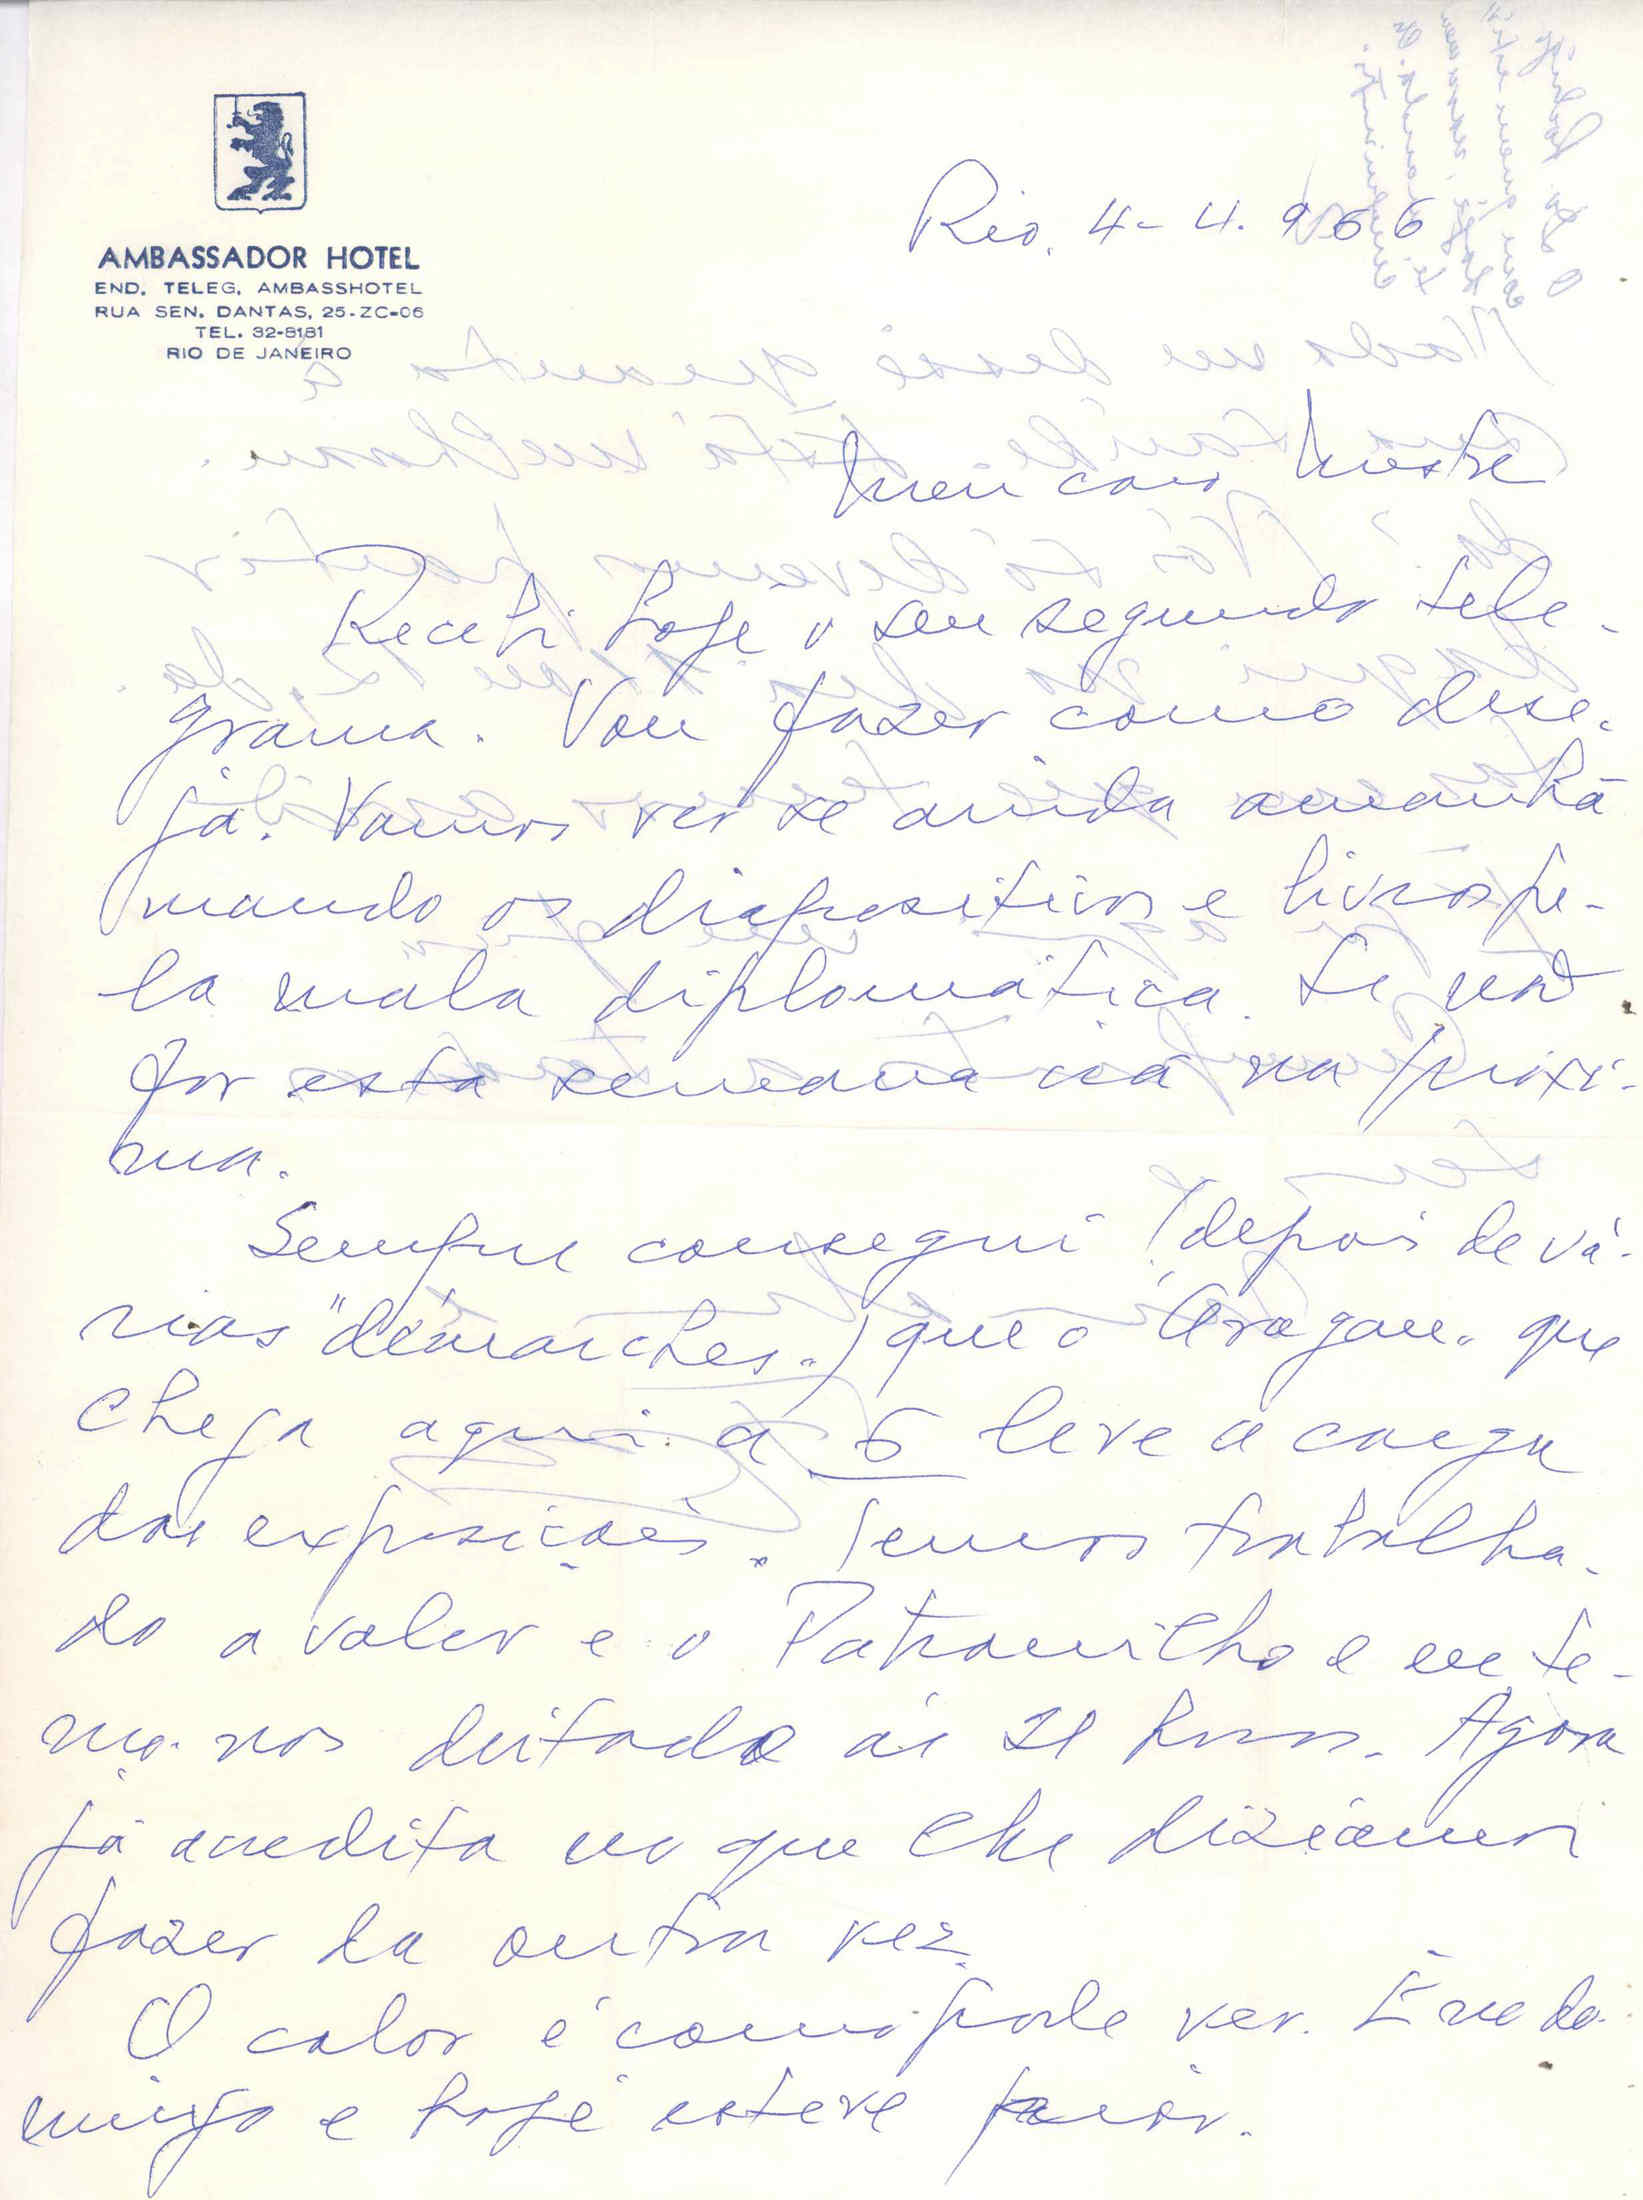 AMBASSADOR HOTEL
END. TELEG. AMBASSHOTEL
RUA SEN. DANTAS, 25-ZC-06
TEL. 32-8181
RIO DE JANEIRO
Rio. 4-4.966
Meu caro Mestre
Recebi hoje o seu segundo tele-
grama. Vou fazer como dese-
ja. Vamos ver se ainda amanhã
mando os diapositivos e livros pe-
la mala diplomática. Se não
for esta semana irá na próxi-
ma.
Sempre consegui (depois de vá-
rias "démarches") que o Aragão que
chega aqui a 6 leve a carga
das exposições. Temos trabalha-
do a valer e o Patromilho e eu te-
mo-nos deitado às 21 horas. Agora
já acredita no que lhe dizíamos
fazer da outra vez.
O calor é como pode ver. E no do-
mingo e hoje esteve pior.